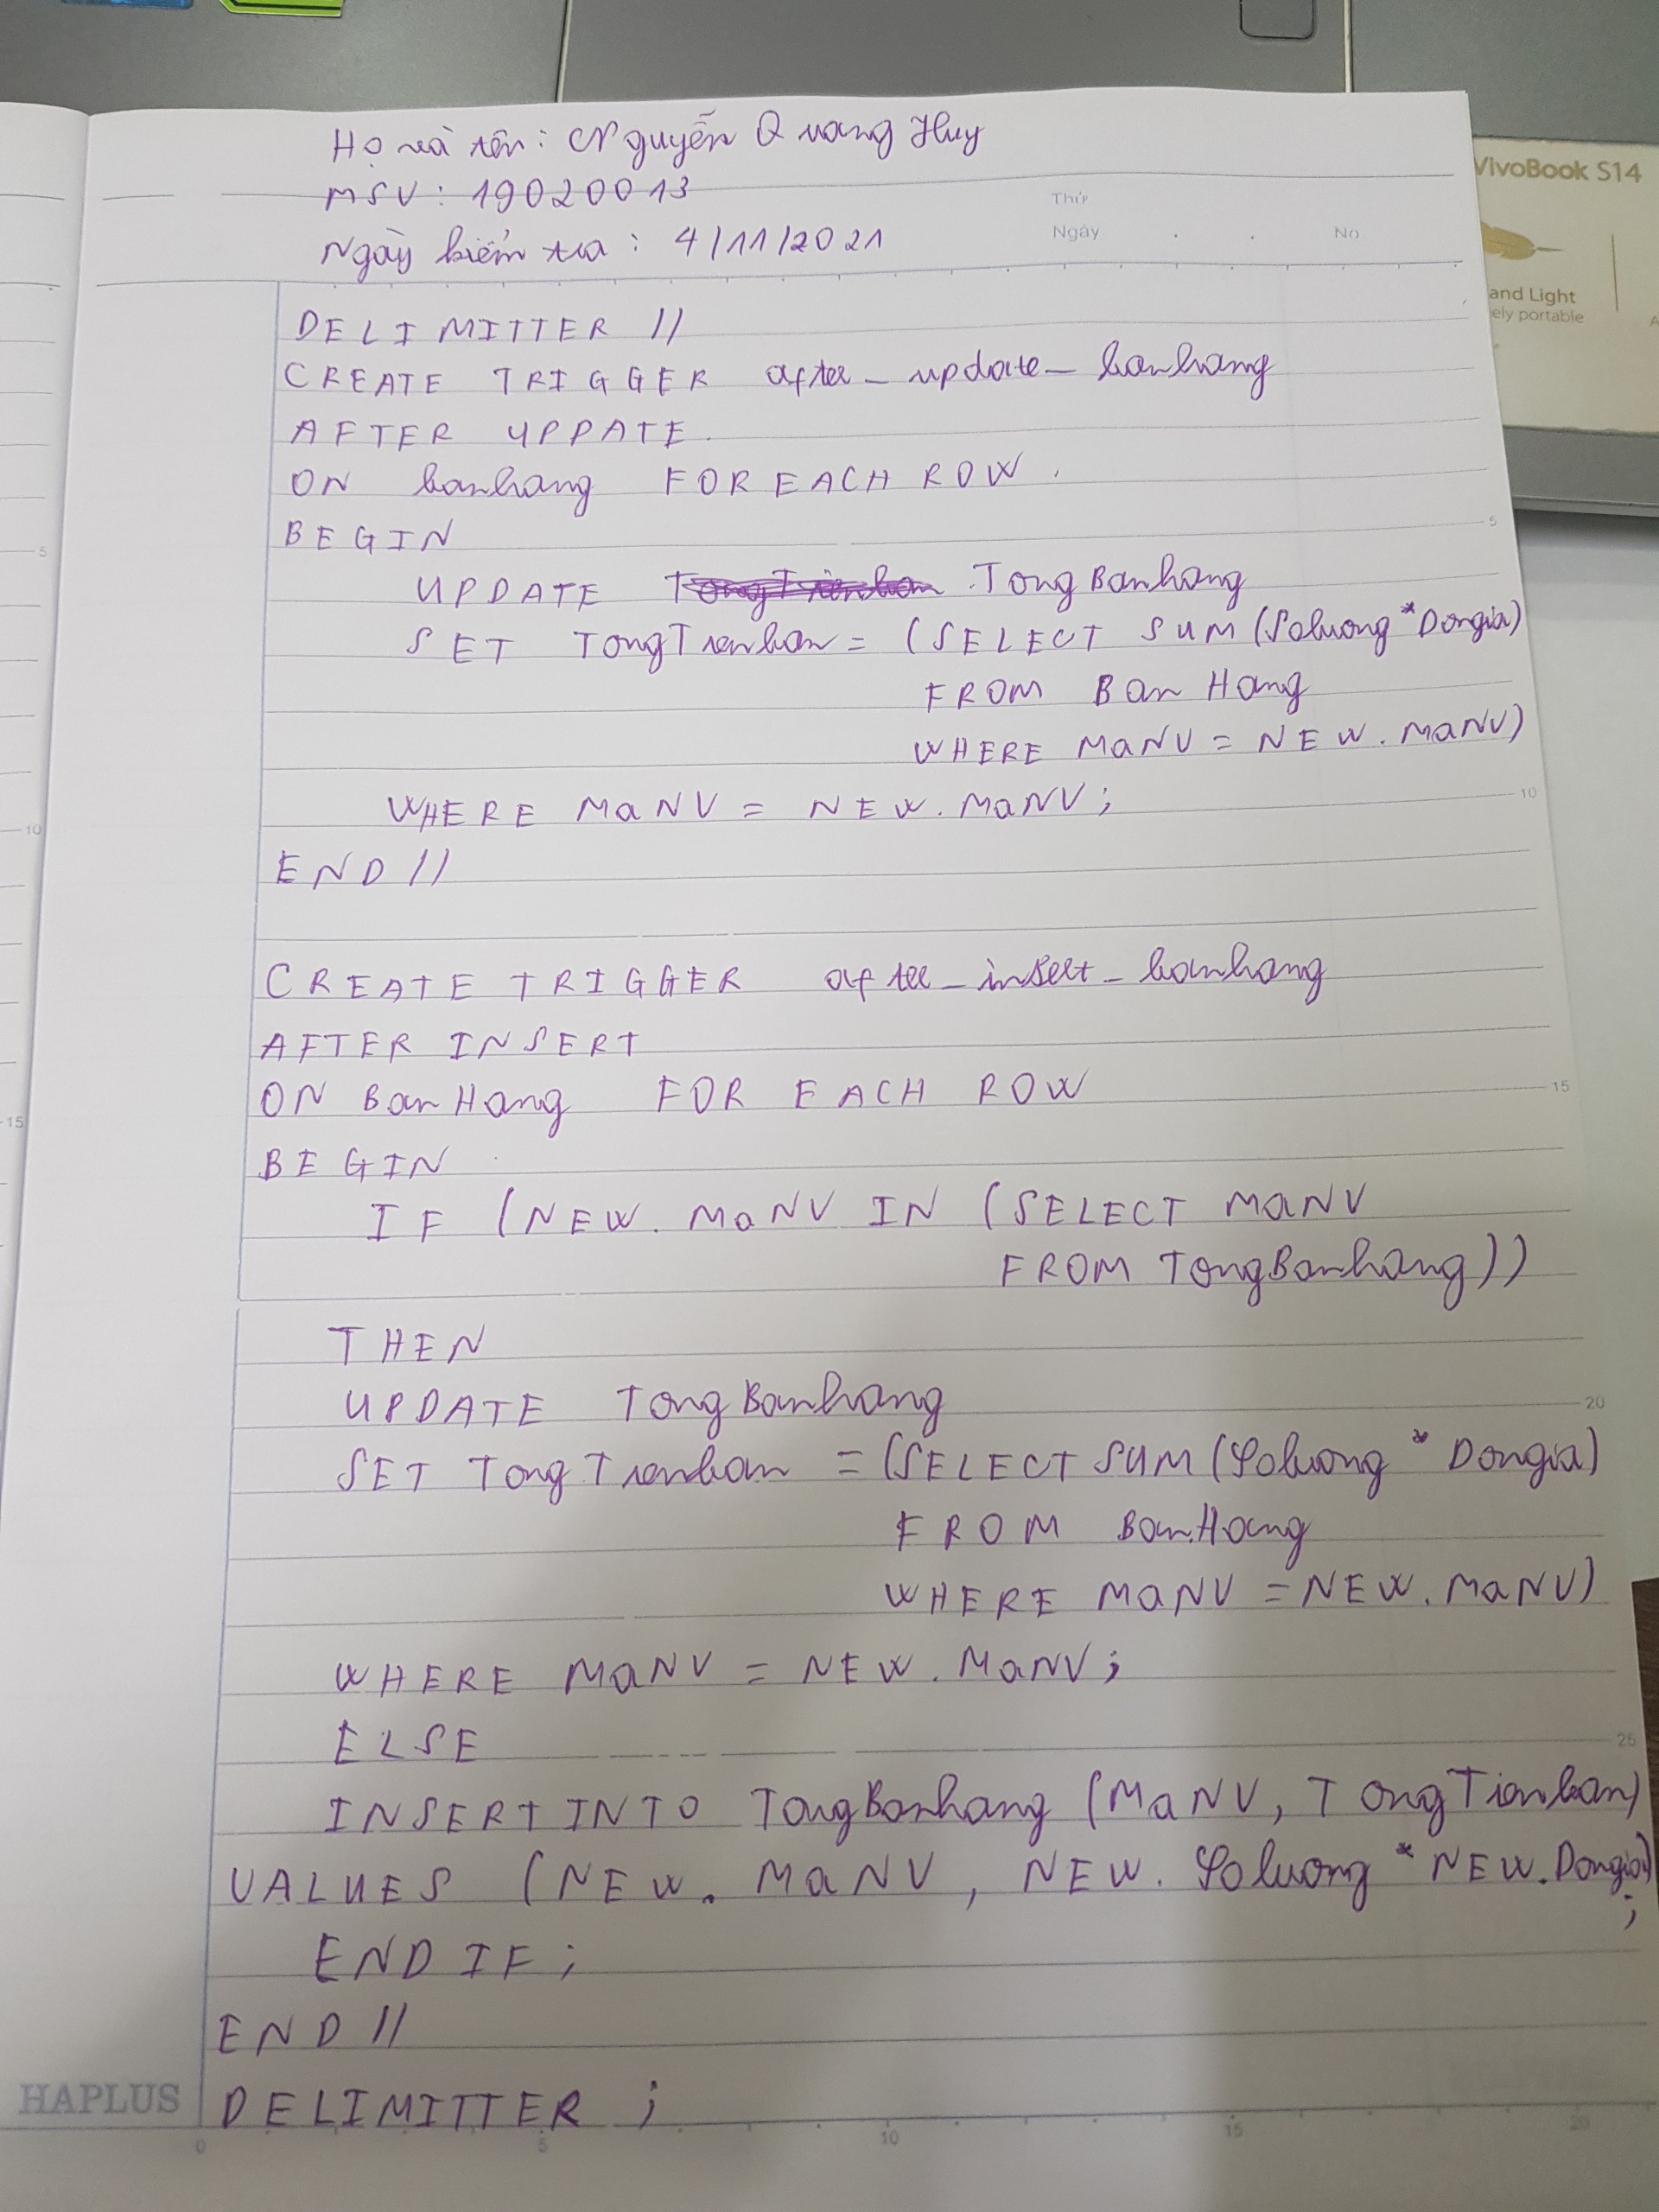 Họ và tên: Nguyễn Quang Huy
MSV: 19020013
Thứ
Ngày kiểm tra: 4/11/2021
Ngày . . No
VivoBook S14
and Light
ely portable
DELIMITTER //
CREATE TRIGGER after_update_banhang
AFTER UPDATE
ON banhang FOR EACH ROW
BEGIN
5
5
UPDATE TongBanhang
SET TongTienban = (SELECT SUM (Soluong * Dongia)
FROM BanHang
WHERE MaNV = NEW.MaNV)
WHERE MaNV = NEW.MaNV;
10
10
END //
CREATE TRIGGER after_insert_banhang
AFTER INSERT
ON BanHang FOR EACH ROW
15
15
BEGIN
IF (NEW.MaNV IN (SELECT MaNV
FROM TongBanhang))
THEN
UPDATE TongBanhang
20
SET TongTienban = (SELECT SUM (Soluong * Dongia)
FROM BanHang
WHERE MaNV = NEW.MaNV)
WHERE MaNV = NEW.MaNV;
ELSE
25
INSERT INTO TongBanhang (MaNV, TongTienban)
VALUES (NEW.MaNV, NEW.Soluong * NEW.Dongia)
;
END IF;
END //
HAPLUS
DELIMITTER ;
0 5 10 15 20